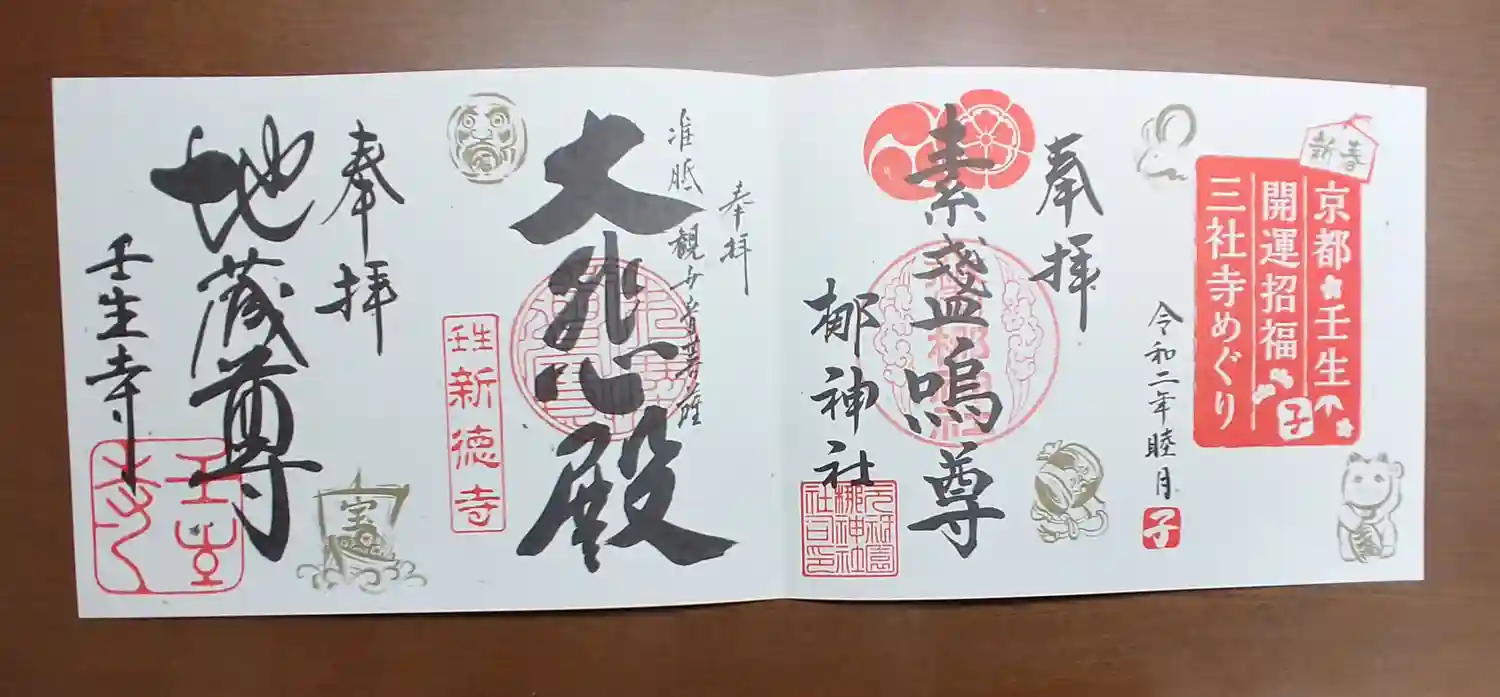 新春
京都壬生
開運招福
三社寺めぐり
子
令和二年睦月
子
奉拝
素盞嗚尊
梛神社
元祇園
梛神社
社日印
奉拝
准胝観世音菩薩
大悲殿
壬生
新徳寺
奉拝
地蔵尊
壬生寺
宝